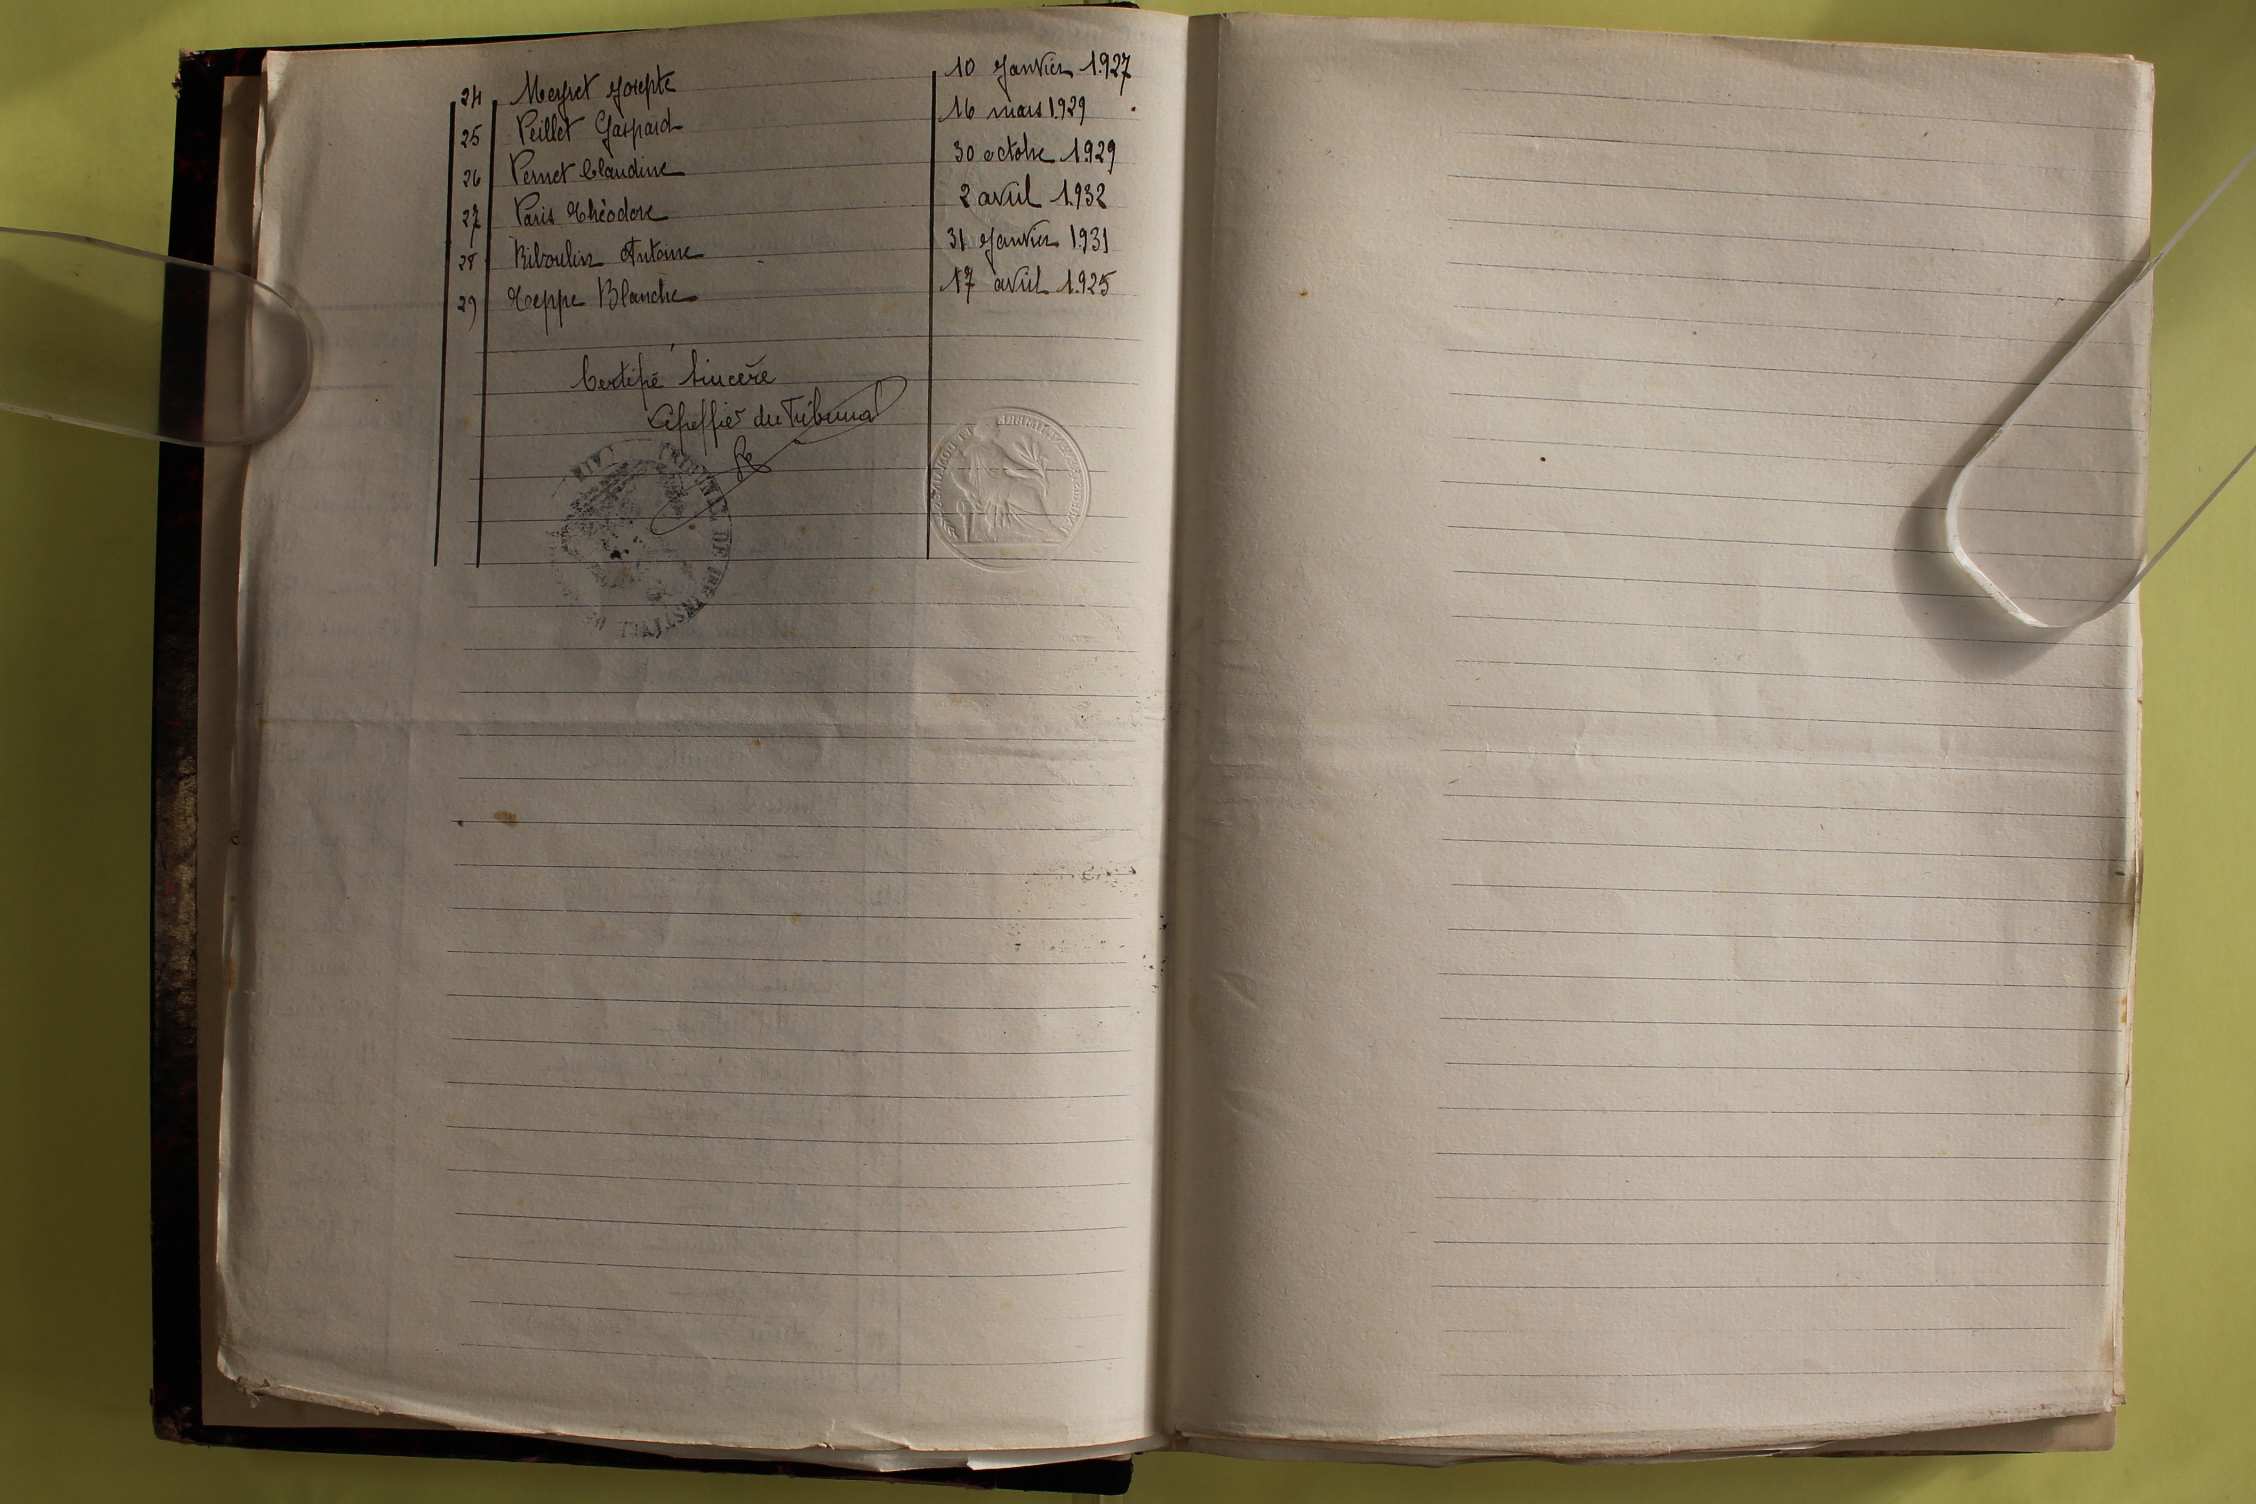 24 Meyret Josepte 10 Janvier 1927
25 Peillet Gaspard 16 mars 1929
26 Pernet Claudine 30 octobre 1929
27 Paris Théodore 2 avril 1932
28 Riboulin Antoine 31 Janvier 1931
29 Teppe Blanche 17 avril 1925
Certifié Sincère
Le greffier du Tribunal
TRIBUNAL DE 1RE INSTANCE